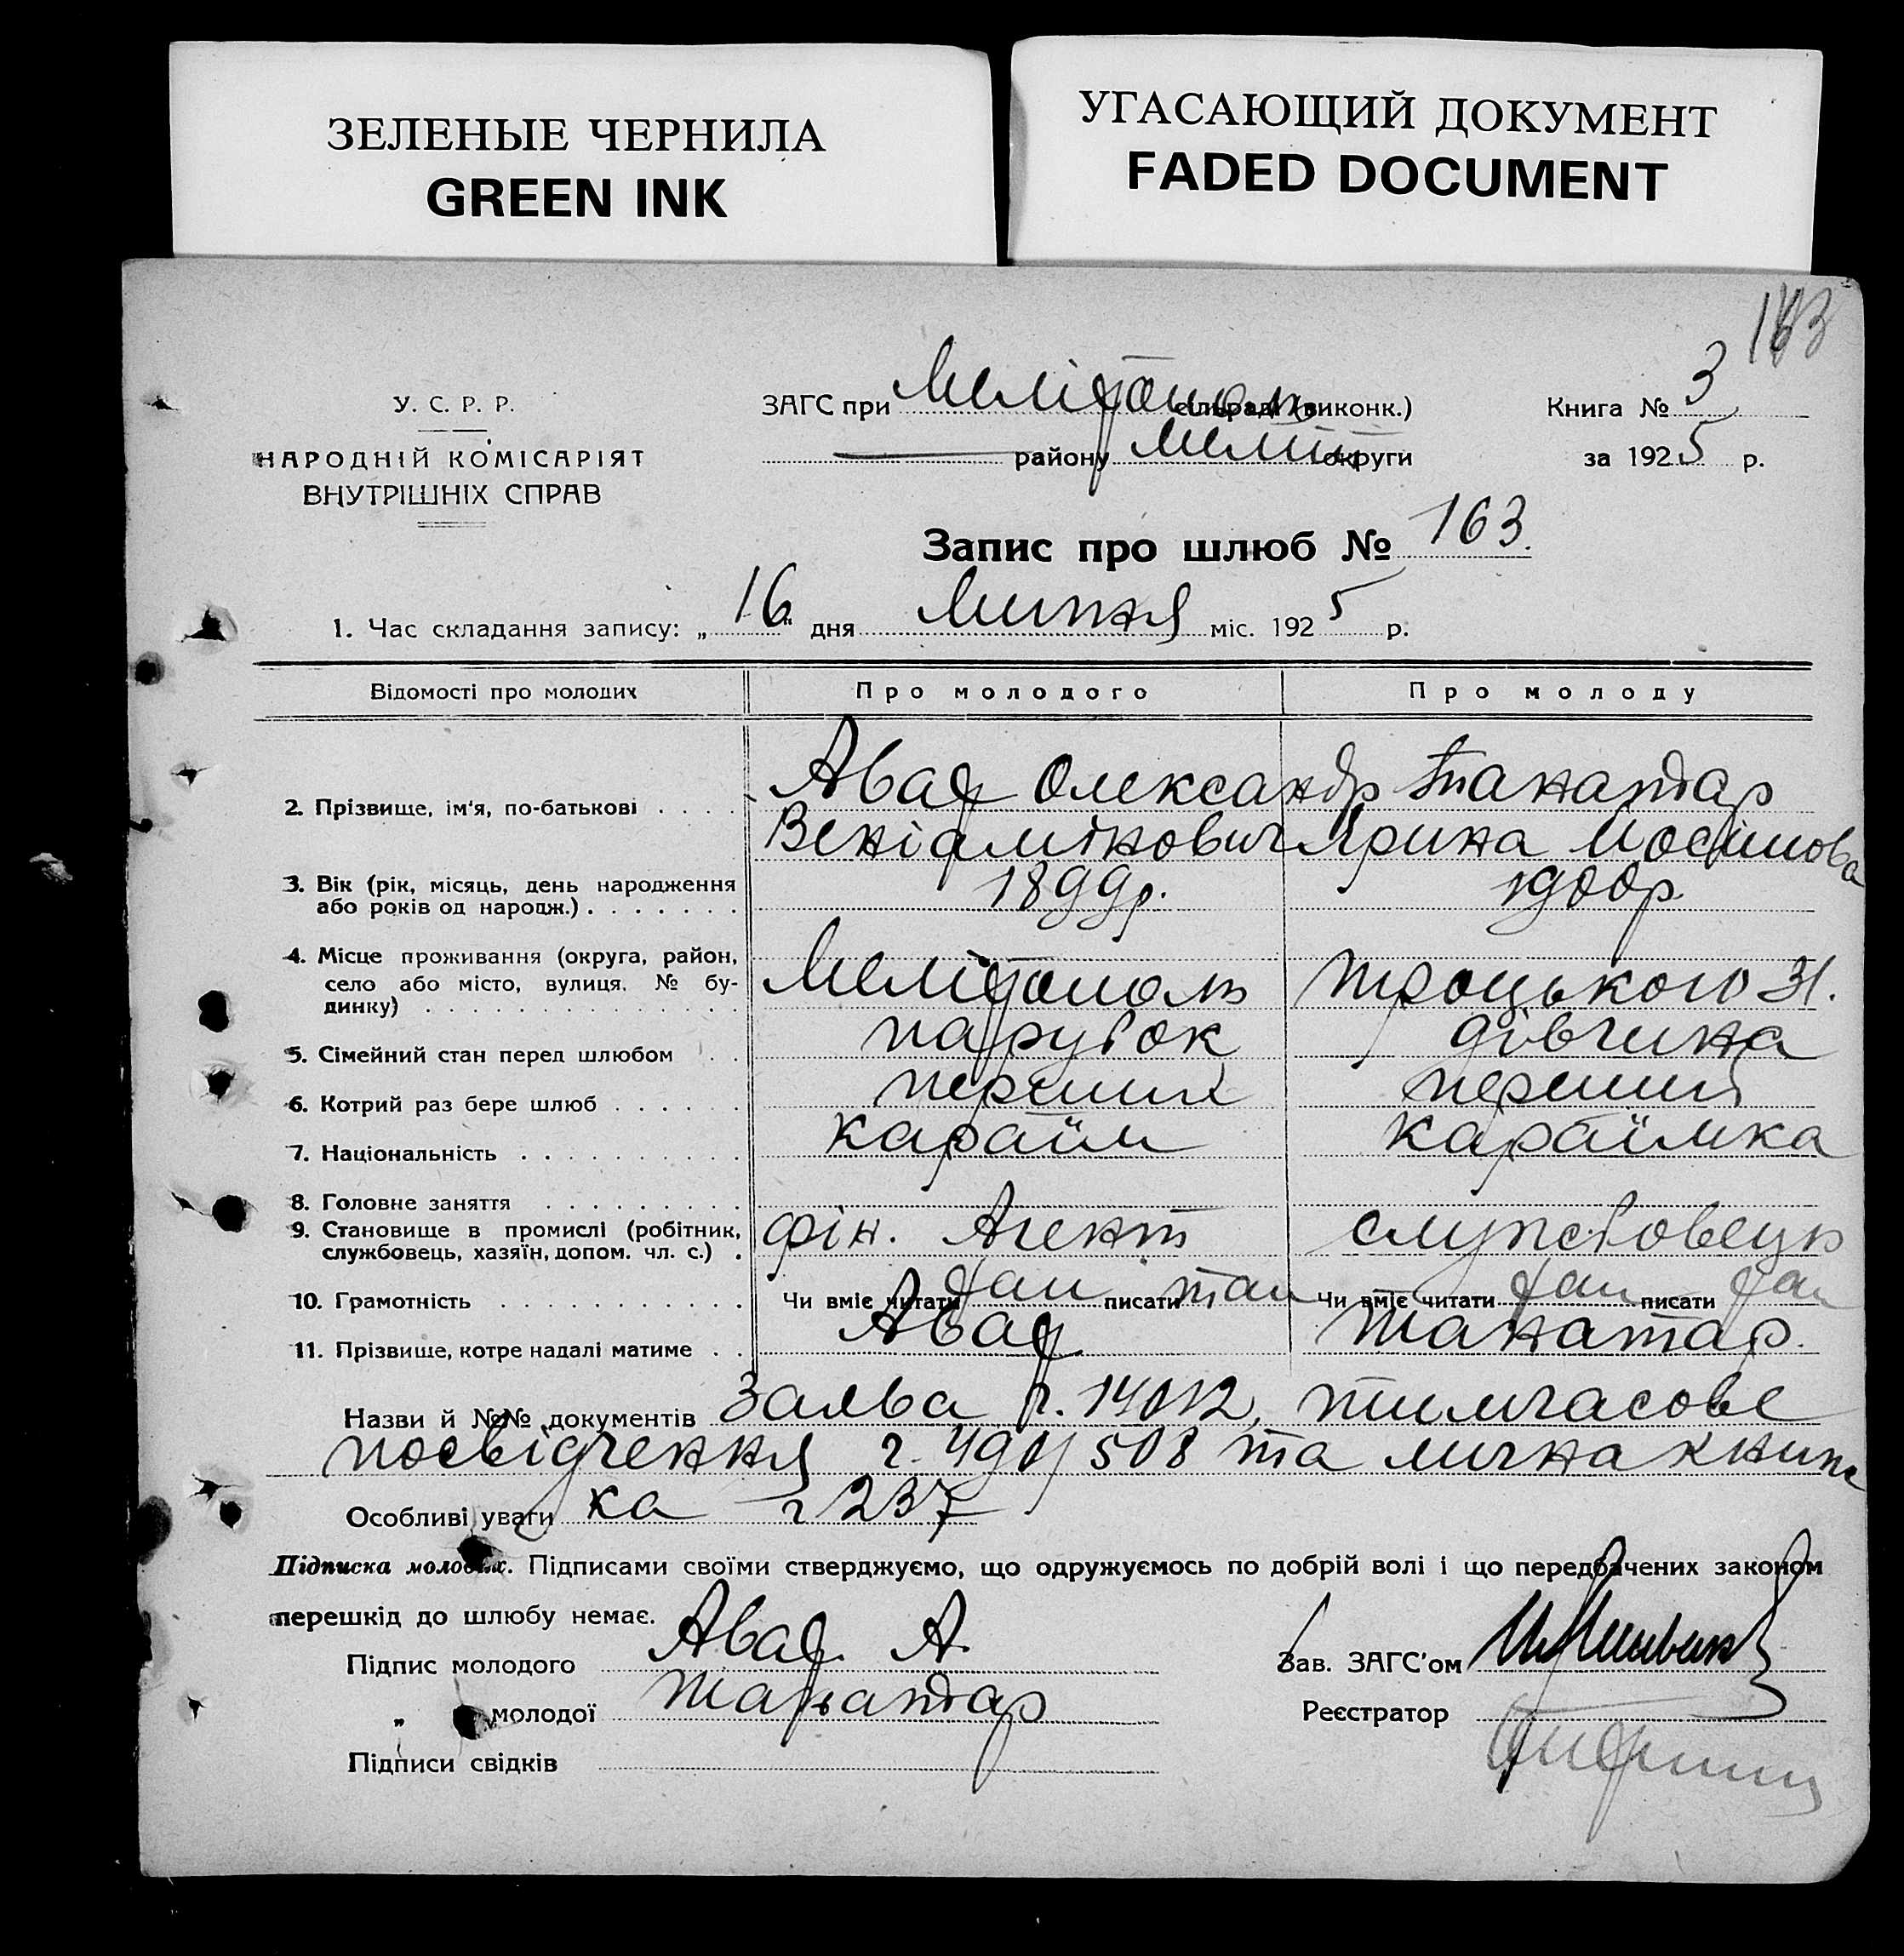 ЗЕЛЕНЫЕ ЧЕРНИЛА
GREEN INK
УГАСАЮЩИЙ ДОКУМЕНТ
FADED DOCUMENT
163
У. С. Р. Р.
НАРОДНІЙ КОМІСАРІЯТ
ВНУТРІШНІХ СПРАВ
ЗАГС при Мелітополь сільраді (виконк.)
району Меліт округи
Книга № 3
за 1925 р.
Запис про шлюб № 163.
1. Час складання запису: „16" дня Липня міс. 1925 р.
Відомості про молодих Про молодого Про молоду
2. Прізвище, ім'я, по-батькові Авад Олександр Веніамінович Танатар Ярина Йосипова
3. Вік (рік, місяць, день народження або років од народж.) 1899р. 1900р.
4. Місце проживання (округа, район, село або місто, вулиця, № будинку) Мелітополь Троцького 31.
5. Сімейний стан перед шлюбом парубок дівчина
6. Котрий раз бере шлюб перший перший
7. Національність караїм караїмка
8. Головне заняття
9. Становище в промислі (робітник, службовець, хазяїн, допом. чл. с.) фін. Агент службовець
10. Грамотність Чи вміє читати так писати так Чи вміє читати так писати так
11. Прізвище, котре надалі матиме Авад Танатар.
Назви й №№ документів Заява ч. 14012, тимчасове
посвідчення ч. 508 та лична книж
Особливі уваги ка ч 237
Підписка молодих. Підписами своїми стверджуємо, що одружуємось по добрій волі і що передбачених законом
перешкід до шлюбу немає.
Підпис молодого Авад А.
Зав. ЗАГС'ом
„ молодої Танатар
Реєстратор
Підписи свідків